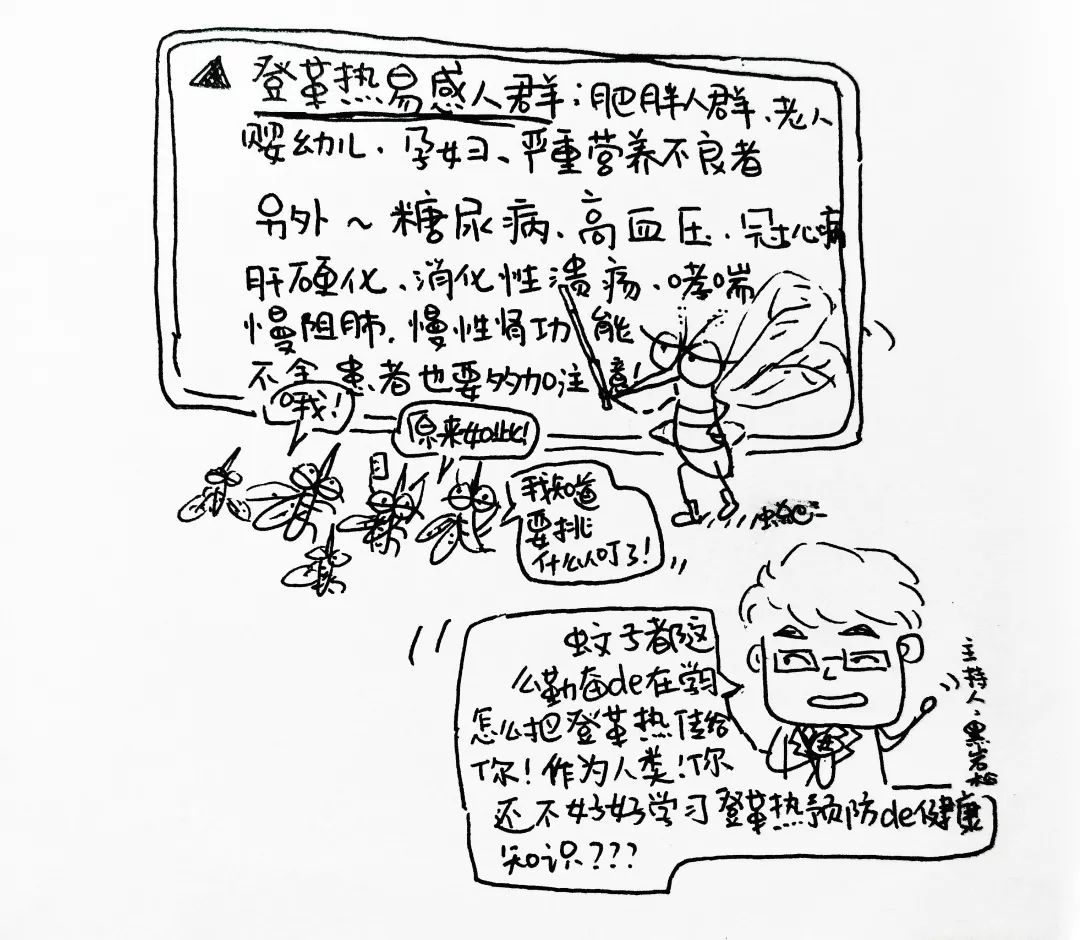 登革热易感人群:肥胖人群、老人
婴幼儿、孕妇、严重营养不良者
另外~糖尿病、高血压、冠心病
肝硬化、消化性溃疡、哮喘
慢阻肺、慢性肾功能
不全患者也要多加注意!
哦!
原来如此!
我知道
要挑
什么人叮了!
蚊子都这
么勤奋de在学习
怎么把登革热传给
你!作为人类!你
还不好好学习登革热预防de健康
知识???
主持人:黑岩松